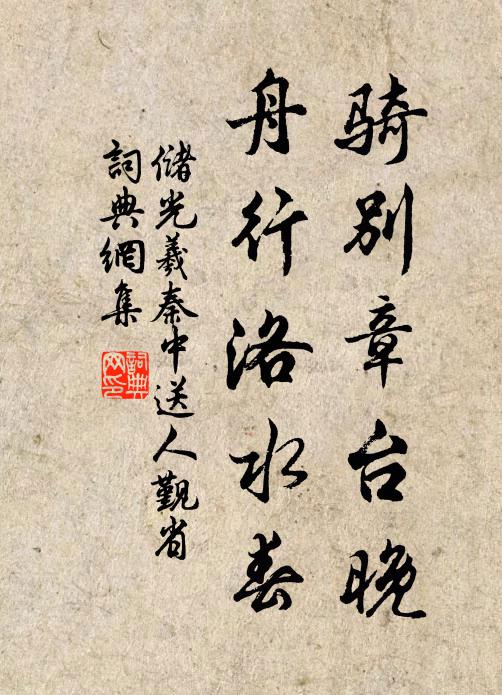 骑别章台晚
舟行洛水春
储光羲秦中送人觐省
詞典網集
詞典網印